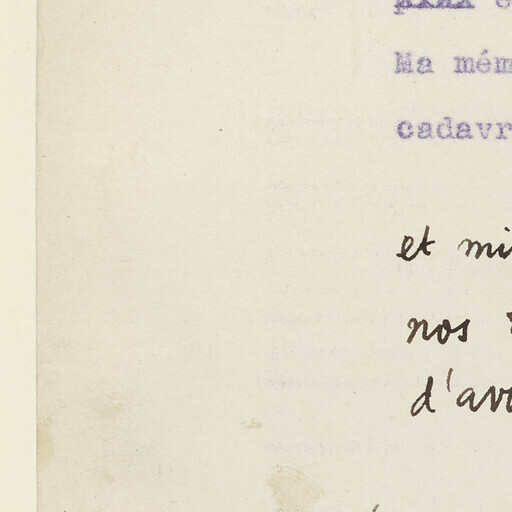 Ma mém
cadavr
et mi
nos
d'avo